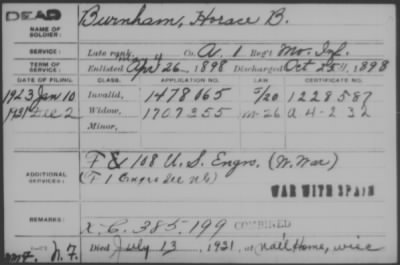 DEAD
NAME OF SOLDIER: Burnham, Horace B.
SERVICE: Late rank, Co. A. 1 Reg't Mo. Inf.
TERM OF SERVICE: Enlisted Apr 26, 1898 Discharged Oct 25, 1898
DATE OF FILING. CLASS. APPLICATION NO. LAW CERTIFICATE NO.
1923 Jan 10 Invalid, 1478065 5/20 1228587
1931 Dec 2 Widow, 1707355 m-26 a 4-2 32
Minor,
ADDITIONAL SERVICES: F & 108 U.S. Engrs. (W. War)
(F 1 Engrs
WAR WITH SPAIN
REMARKS: X.C. 385,199 COMBINED
n.F. Died July 13, 1931, at Nat'l Home, Wisc